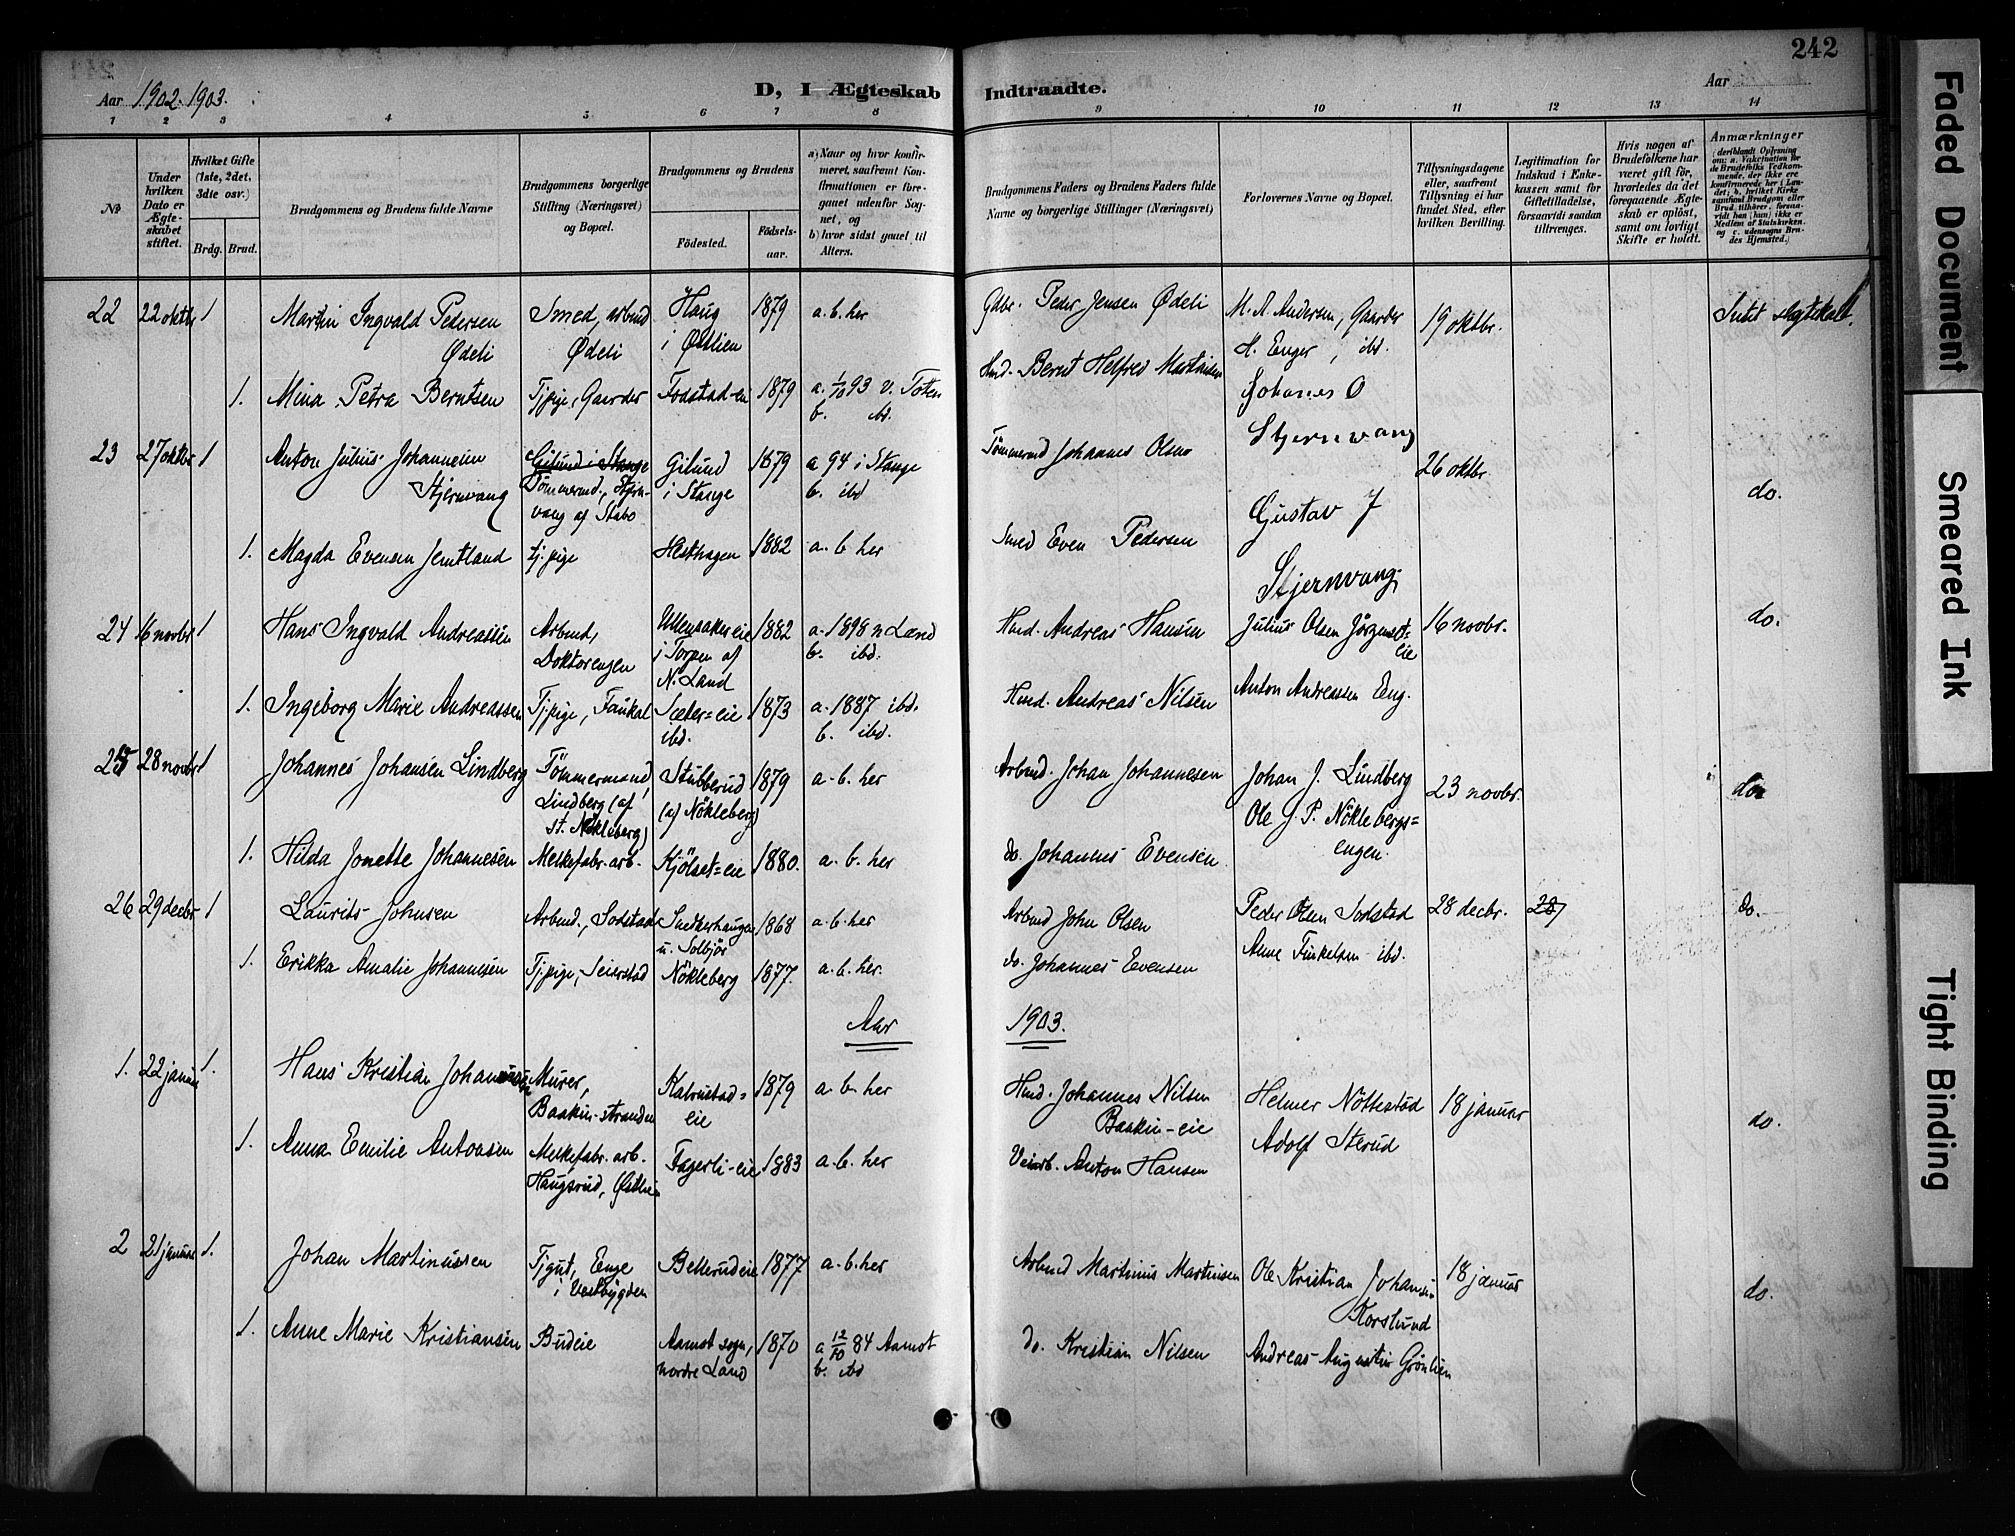 242
Aar 1902. 1903.
D, I Ægteskab Indtraadte.
Aar
1 2 3 4 5 6 7 8 9 10 11 12 13 14
No
Under hvilken Dato er Ægteskabet stiftet.
Hvilket Gifte (1ste, 2det, 3die osv.)
Brdg. Brud.
Brudgommens og Brudens fulde Navne
Brudgommens borgerlige Stilling (Næringsvei) og Bopæl.
Brudgommens og Brudens
Födested. Födselsaar.
a) Naar og hvor konfirmeret, saafremt Konfirmationen er foregaaet udenfor Sognet, og
b) hvor sidst gaaet til Alters.
Brudgommens Faders og Brudens Faders fulde Navne og borgerlige Stillinger (Næringsvei)
Forlovernes Navne og Bopæl.
Tillysningsdagene eller, saafremt Tillysning ei har fundet Sted, efter hvilken Bevilling.
Legitimation for Indskud i Enkekassen samt for Giftetilladelse, forsaavidt saadan tiltrænges.
Hvis nogen af Brudefolkene har været gift før, hvorledes da det foregaaende Ægteskab er opløst, samt om lovligt Skifte er holdt.
Anmærkninger
22 22 oktbr 1 Martin Ingvald Pedersen Ødeli Smed, arbmd Ødeli Haug i Østlien 1879 a. b. her Gdbr. Peder Jensen Ødeli M. A. Andersen, Gaarder H. Enger, ibd. 19 oktbr. Intet slegtskab.
1. Mina Petra Berntsen Tjpige, Gaarder Fodstad-ei 1879 a. 1/10 93 V. Toten b. ibd. Hmd. Bernt Helfred Martinsen
Johanes O Stjernvang
23 27 oktbr 1 Anton Julius Johannesen Stjernvang Gilund i Stange Tömmermd., Stjernvang af Stabo Gilund i Stange 1879 a 94 i Stange b. ibd Tömmermd Johannes Olsen Gustav J Stjernvang 26 oktbr. do.
1. Magda Evensen Jemtland tj. pige Hesthagen 1882 a. b her Smed Even Pedersen
24 16 novbr 1 Hans Ingvald Andreassen Arbmd, Doktorengen Ullensakereie i Torpen af N. Land 1882 a. 1898 n Land b. ibd. Hmd. Andreas Hansen Julius Olsen 16 novbr. do.
1. Ingeborg Marie Andreassen Tjpige, Faukal Sæter=eie ibd. 1873 a. 1887 ibd. b. ibd. Hmd. Andreas Nilsen Anton Andreassen Eng.
25 28 novbr 1 Johannes Johansen Lindberg Tömmermand, Lindberg (af st. Nökleberg) Stubberud (af Nökleberg) 1879 a. b. her Arbmd. Johan Johannesen Johan J. Lindberg Ole J. P. Nöklebergs=engen. 23 novbr. do
1. Hilda Jonette Johannesen Melkefabr. arb. Kjölset=eie 1880. a. b. her do. Johannes Evensen
26 29 decbr 1 Laurits Johnsen Arbmd., Sodstad Snekkerhaugen u. Solbjör 1868 a. b. her Arbmd John Olsen Peder Olsen Sodstad 28 decbr. 28 Do.
1. Erikka Amalie Johannesen Tjpige, Seierstad Nökleberg 1877. a. b. her. do. Johannes Evensen Anne Finkelsen ibd.
Aar 1903.
1. 22 januar 1. Hans Kristian Johannesen Murer, Baakin-stranden eie 1879 a. b. her Hmd. Johannes Nilsen Baakin-eie Helmer Nöttestad 18 januar do.
1. Anna Emilie Antonsen Melkefabr. arb. Haugsrud, Østlien Fagerli-eie 1883 a. b. her Veiarb. Anton Hansen Adolf Sterud
2 21 januar 1. Johan Martinussen Tjgut, Enge i Vestbygden Bellerudeie 1877 a. b. her Arbmd Martinus Martinsen Ole Kristian Johansen Korslund 18 januar do.
1. Anne Marie Kristiansen Budeie Aamot sogn, nordre Land 1870 a 12/10 84 Aamot b. ibd do. Kristian Nilsen Andreas Augustin Grönlien
Faded Document
Smeared Ink
Tight Binding